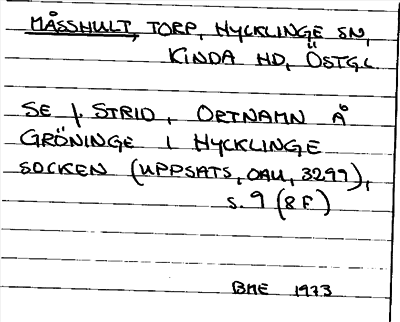 MÅSSHULT, TORP, HYCKLINGE SN,
KINDA HD, ÖSTGL
SE J. STRID, ORTNAMN Å
GRÖNINGE I HYCKLINGE
SOCKEN (UPPSATS, OAU, 3299),
S. 9 (8 F)
BME 1973